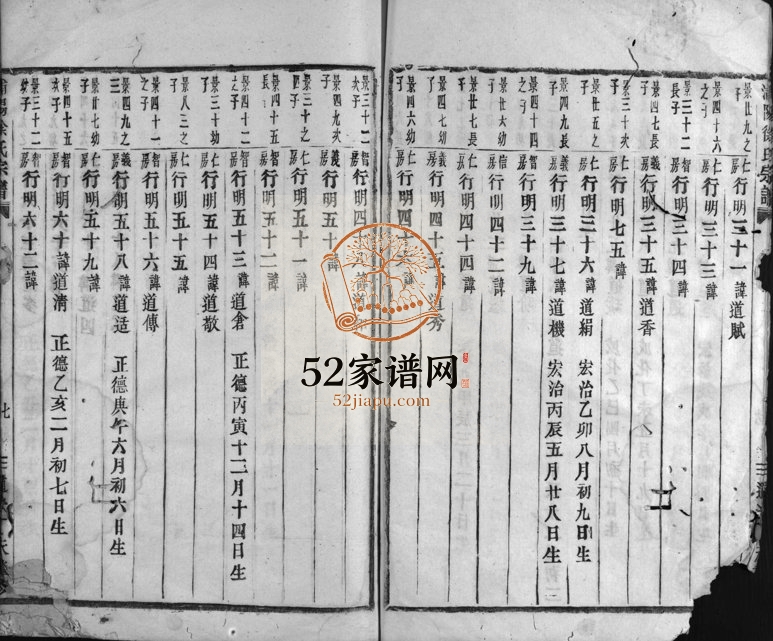 徐氏宗譜
景廿九之子 仁房 行明三十一 諱道賦
景四十六之子 仁房 行明三十三 諱
景三十二長子 智房 行明三十四 諱
景四七長子 義房 行明三十五 諱道香
景三十次子 仁房 行明七五 諱
景廿五之子 仁房 行明三十六 諱道絹 宏治乙卯八月初九日生
景四九長子 義房 行明三十七 諱道機 宏治丙辰五月廿八日生
景四十四之子 智房 行明三十九 諱
景廿六幼子 信房 行明四十二 諱
景四七次子 義房 行明四十四 諱
景四七幼子 義房 行明四十五 諱道秀
景四六幼子 仁房 行明四十
景四九次子 義房 行明五十
景三十之四子 仁房 行明五十一 諱
景四十五長子 智房 行明五十二 諱
景三十二之子 智房 行明五十三 諱道倉 正德丙寅十二月十四日生
景三十幼子 仁房 行明五十四 諱道敬
景八三之子 仁房 行明五十五 諱
景四十一之子 智房 行明五十六 諱道傳
景四九之三子 義房 行明五十八 諱道适 正德庚午六月初六日生
景廿七幼子 仁房 行明五十九 諱
景三十二次子 智房 行明六十 諱道清 正德乙亥二月初七日生
景三十二幼子 智房 行明六十二 諱
徐氏宗譜
七
52家谱网
52jiapu.com